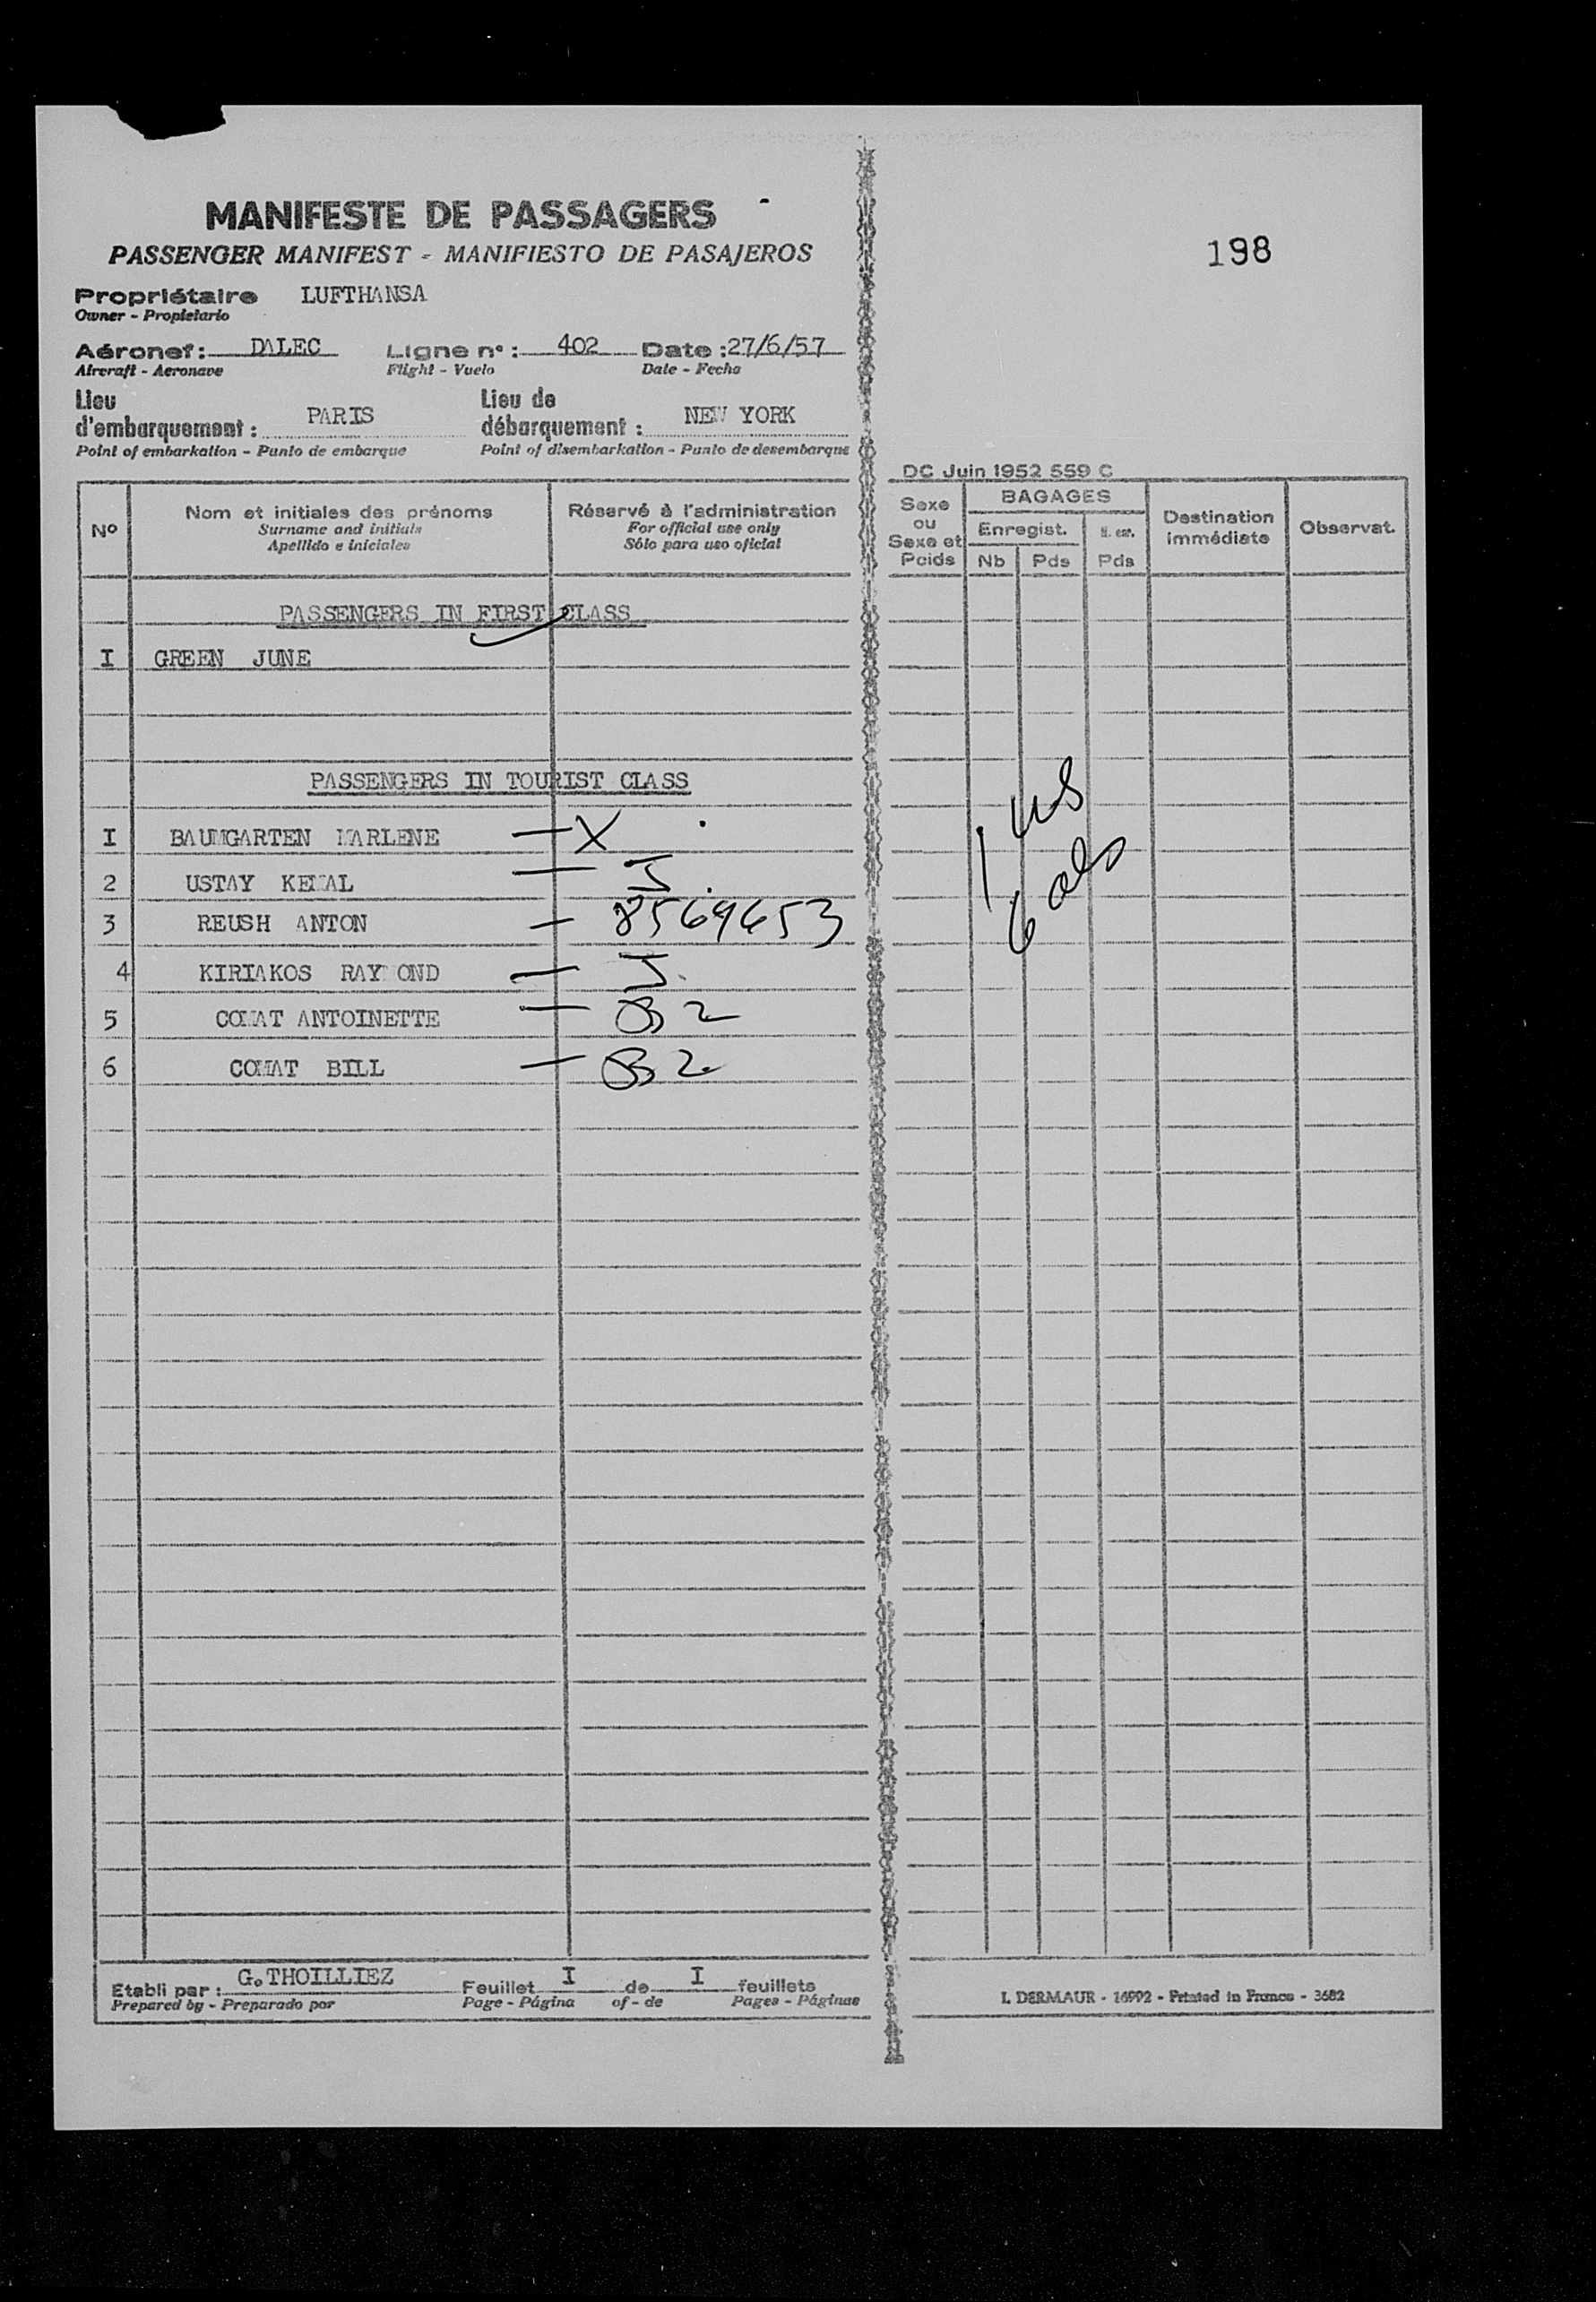 MANIFESTE DE PASSAGERS
PASSENGER MANIFEST - MANIFIESTO DE PASAJEROS
198
Propriétaire LUFTHANSA
Owner - Propietario
Aéronef : DALEC Ligne n° : 402 Date : 27/6/57
Aircraft - Aeronave Flight - Vuelo Date - Fecha
Lieu d'embarquement : PARIS Lieu de débarquement : NEW YORK
Point of embarkation - Punto de embarque Point of disembarkation - Punto de desembarque
DC Juin 1952 559 C
N° Nom et initiales des prénoms Réservé à l'administration Sexe ou Sexe et Poids BAGAGES Destination immédiate Observat.
Surname and initials For official use only Enregist.
Apellido e iniciales Sólo para uso oficial Nb Pds Pds
PASSENGERS IN FIRST CLASS
I GREEN JUNE
PASSENGERS IN TOURIST CLASS
1 us
I BAUMGARTEN MARLENE — X
6 als
2 USTAY KEMAL — J
3 REUSH ANTON — 8569653
4 KIRIAKOS RAYMOND — J
5 COMAT ANTOINETTE — B2
6 COMAT BILL — B2
Etabli par : G. THOILLIEZ Feuillet I de I feuillets
Prepared by - Preparado por Page - Página of - de Pages - Páginas
I. DERMAUR - 14992 - Printed in France - 3682